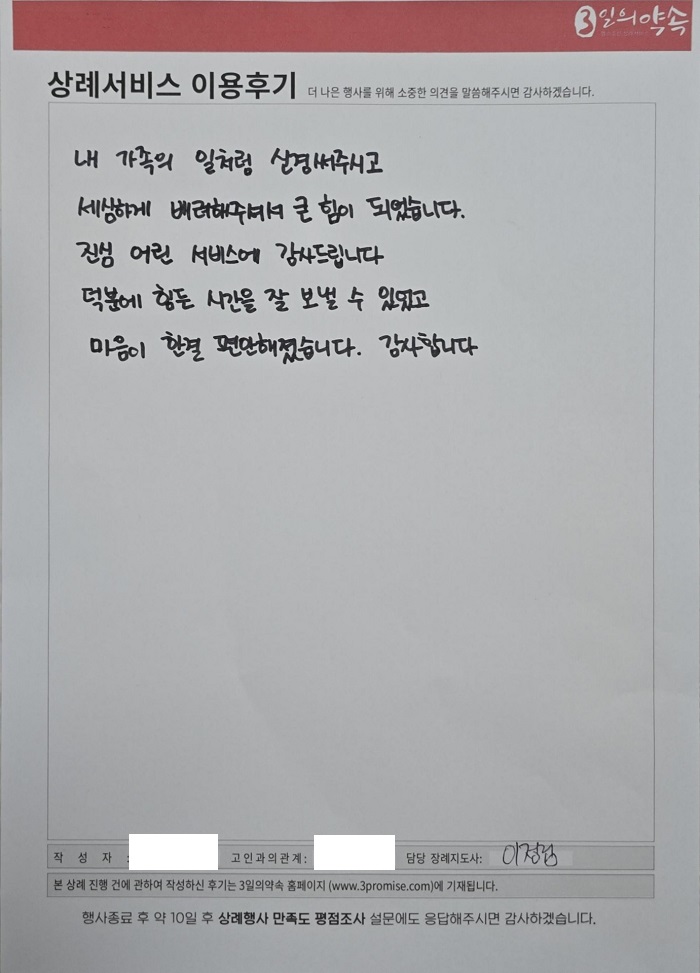 3일의약속
상례서비스 이용후기 더 나은 행사를 위해 소중한 의견을 말씀해주시면 감사하겠습니다.
내 가족의 일처럼 신경써주시고
세심하게 배려해주셔서 큰 힘이 되었습니다.
진심 어린 서비스에 감사드립니다
덕분에 힘든 시간을 잘 보낼 수 있었고
마음이 한결 편안해졌습니다. 감사합니다
작 성 자 : 고인과의관계 : 담당 장례지도사:
본 상례 진행 건에 관하여 작성하신 후기는 3일의약속 홈페이지 (www.3promise.com)에 기재됩니다.
행사종료 후 약 10일 후 상례행사 만족도 평점조사 설문에도 응답해주시면 감사하겠습니다.